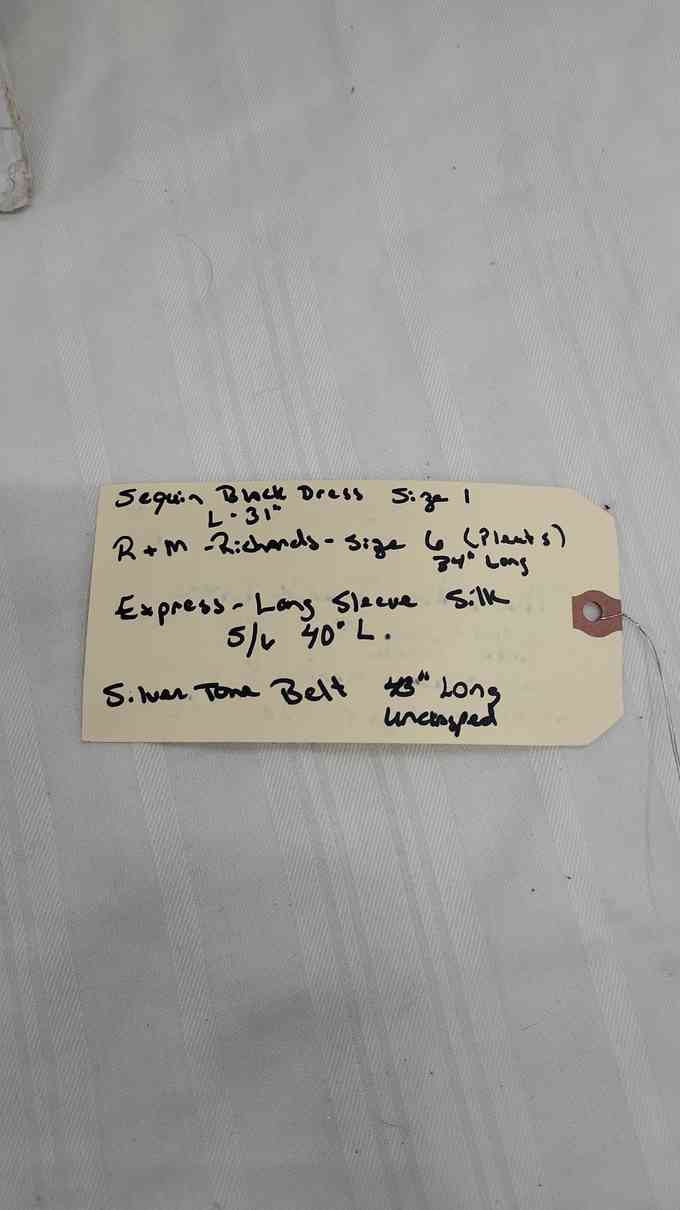 Sequin Black Dress Size 1
L - 31"
R + M - Richards - Size 6 (Pleats)
34" Long
Express - Long Sleeve Silk
40" L.
Silver Tone Belt 43" Long
unclasped